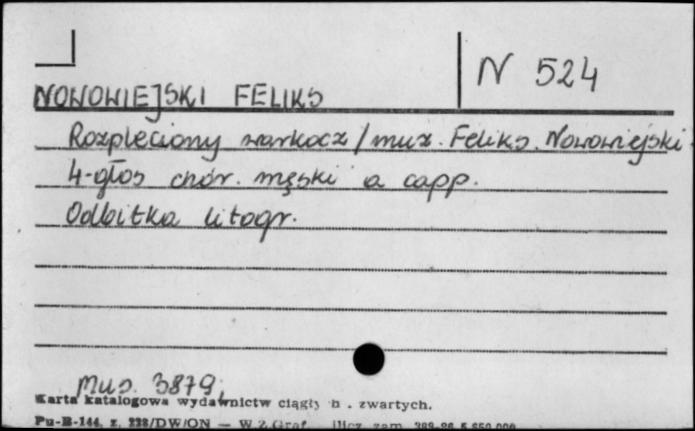 N 524
NOWOWIEJSKI FELIKS
Rozpleciony warkocz / muz. Feliks Nowowiejski.
4-głos chór. męski a capp.
Odbitka litogr.
Mus. 3879
Karta katalogowa wydawnictw ciągłych . zwartych.
Pu-B-144, z. 228/DW/ON — W.Z.Graf. zam.